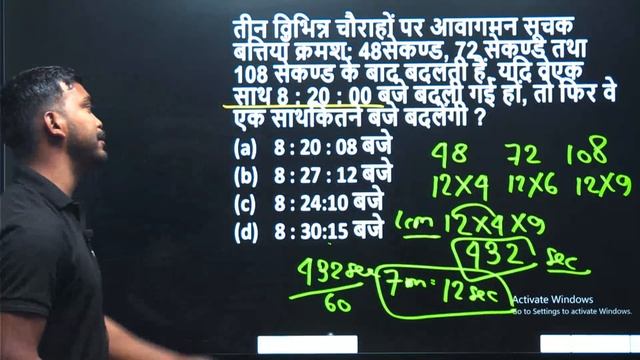 तीन विभिन्न चौराहों पर आवागमन सूचक
बत्तियाँ क्रमश: 48सेकण्ड, 72 सेकण्ड तथा
108 सेकण्ड के बाद बदलती हैं, यदि वेएक
साथ 8 : 20 : 00 बजे बदली गई हों, तो फिर वे
एक साथकितने बजे बदलेगी ?
(a) 8 : 20 : 08 बजे
(b) 8 : 27 : 12 बजे
(c) 8 : 24:10 बजे
(d) 8 : 30:15 बजे
48 72 108
12×4 12×6 12×9
Lcm 12×4×9
432 sec
432 sec
60
7m = 12 sec
Activate Windows
Go to Settings to activate Windows.